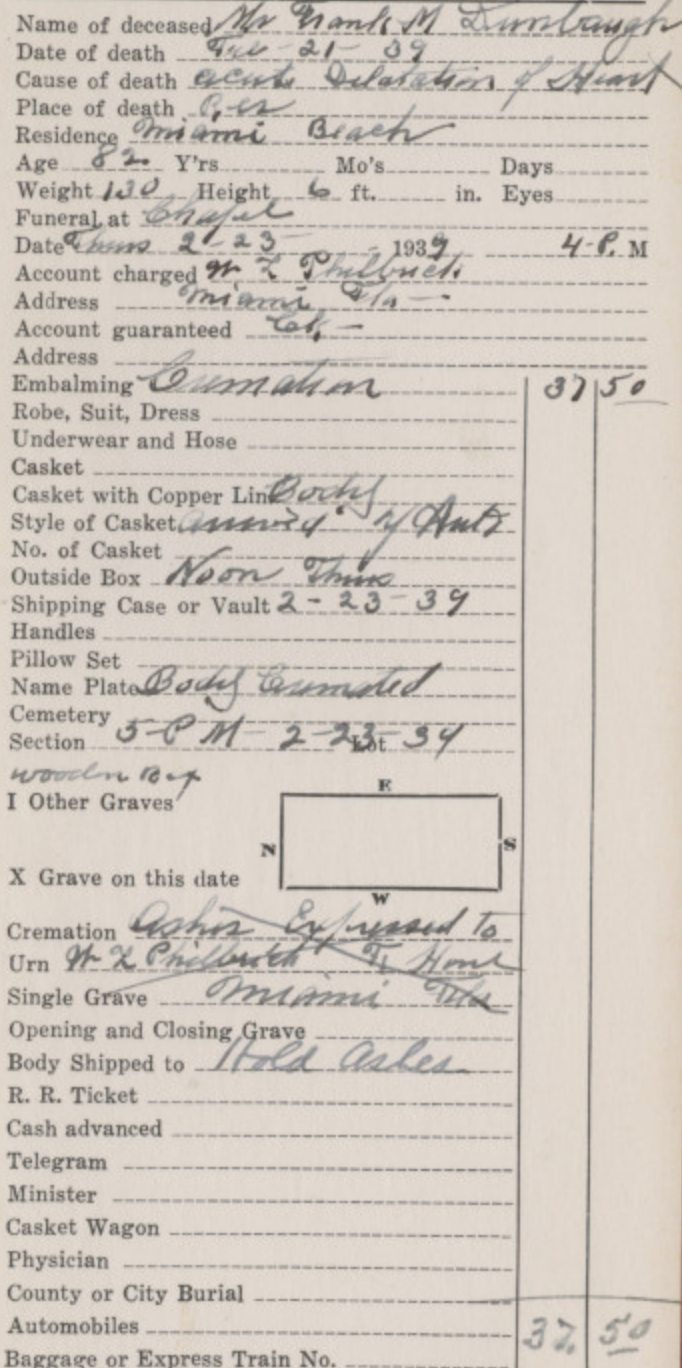 Name of deceased Mr Frank M Dunbaugh
Date of death Feb - 21 - 39
Cause of death acute Dilatation of Heart
Place of death Res
Residence Miami Beach
Age 82 Y'rs Mo's Days
Weight 130 Height 6 ft. in. Eyes
Funeral at Chapel
Date Thurs 2-23 1939 4 P. M
Account charged W L Philbrick
Address Miami Fla -
Account guaranteed Ck -
Address
Embalming Cremation 37 50
Robe, Suit, Dress
Underwear and Hose
Casket
Casket with Copper Lin Body
Style of Casket arrived by Auto
No. of Casket
Outside Box Noon Thurs
Shipping Case or Vault 2 - 23 - 39
Handles
Pillow Set
Name Plate Body Cremated
Cemetery
Section 5 - P M - 2 - 23 - 39 Lot
wooden Box
I Other Graves
E
N S
X Grave on this date
W
Cremation Ashes Expressed to
Urn W L Philbrick Fu Home
Single Grave Miami Fla
Opening and Closing Grave
Body Shipped to Hold Ashes
R. R. Ticket
Cash advanced
Telegram
Minister
Casket Wagon
Physician
County or City Burial
Automobiles 37 50
Baggage or Express Train No.